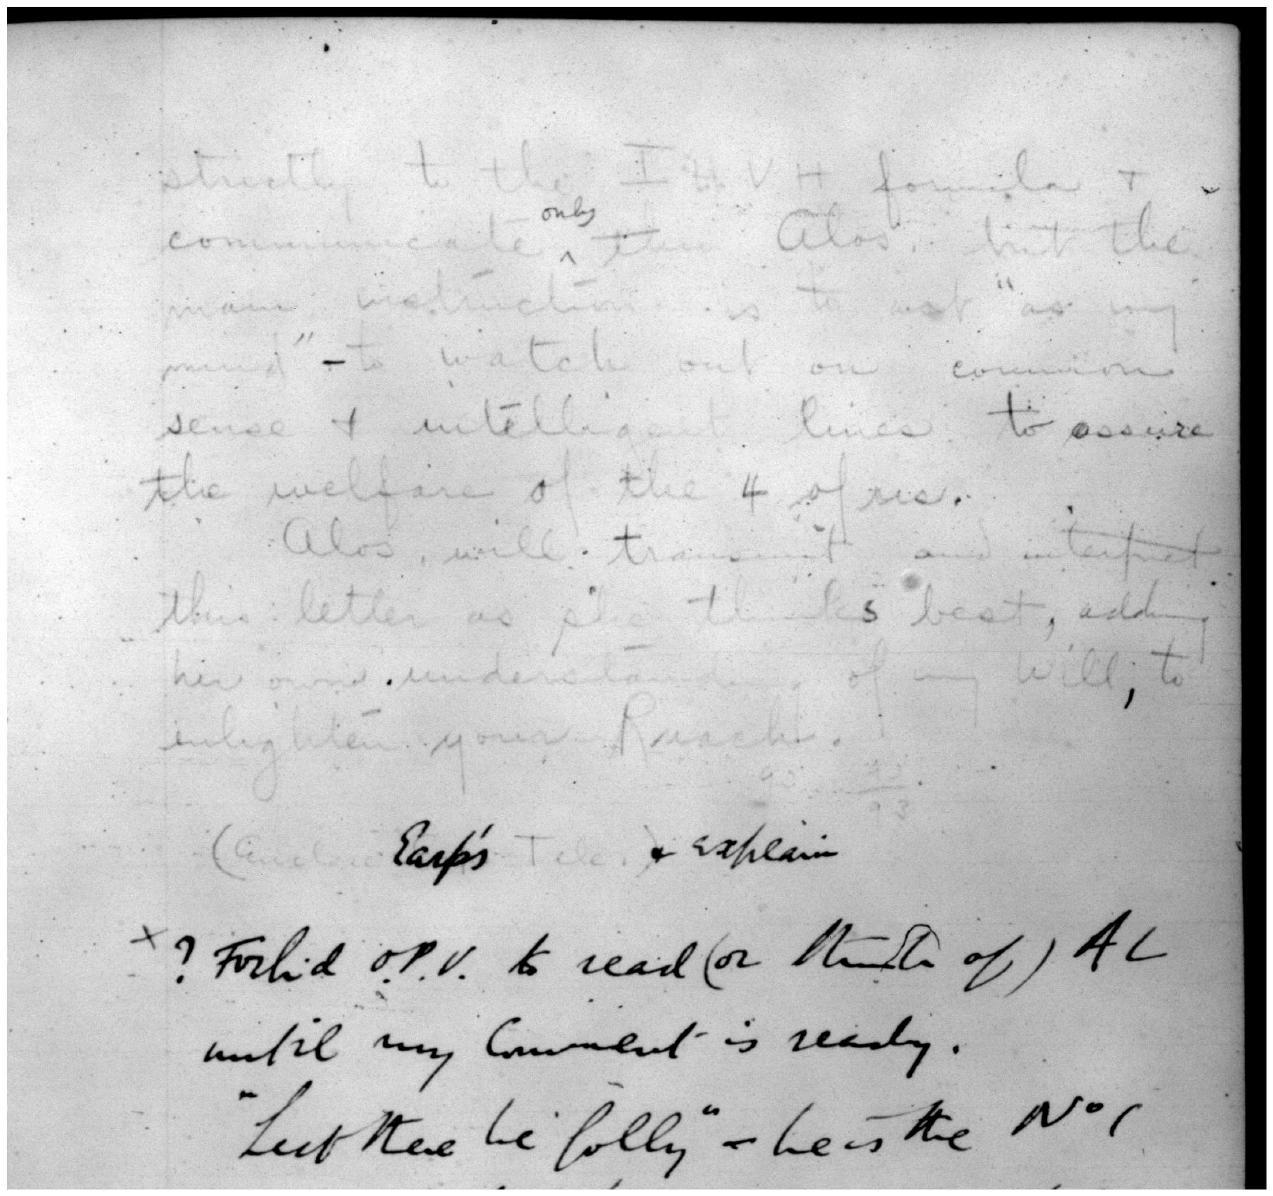 strictly to the I H V H formula +
communicate only thru Alos. but the
main instruction is to act "as my
mind" - to watch out on common
sense + intelligent lines to assure
the welfare of the 4 of us.
Alos. will transmit and interpret
this letter as she thinks best, adding
her own understanding of my Will, to
enlighten your Ruach.
93 93/93
( Earp's Tele. ) + explain
x ? Forbid O.P.V. to read (or think of) AL
until my Comment is ready.
"Lest there be folly" - he is the No 1